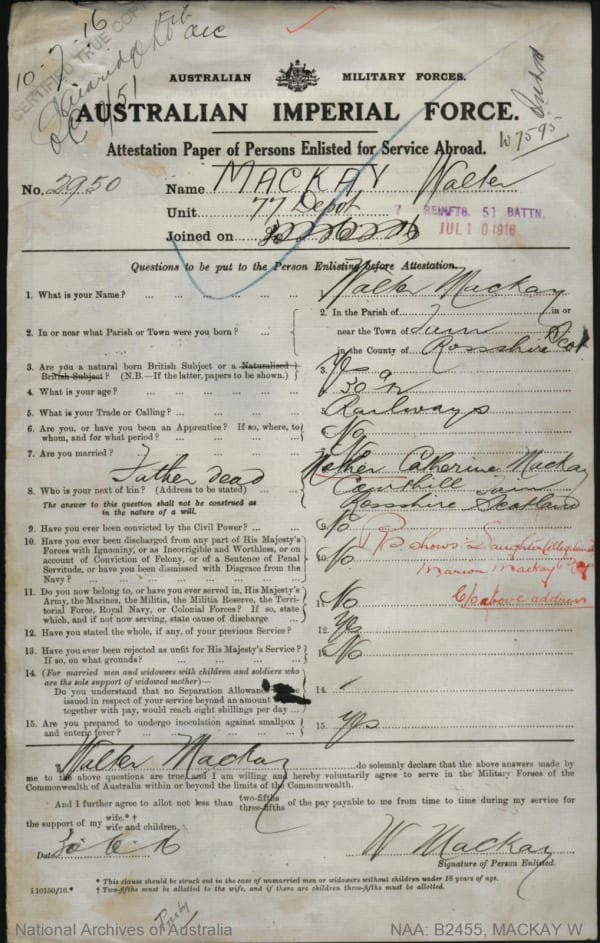 10-7-16
CERTIFIED TRUE COPY
AUSTRALIAN MILITARY FORCES.
AUSTRALIAN IMPERIAL FORCE.
Attestation Paper of Persons Enlisted for Service Abroad.
No. 2950 Name MACKAY Walter
Unit 77 Depot 7 REINFTS. 51 BATTN.
Joined on JUL 10 1916
Questions to be put to the Person Enlisting before Attestation.
1. What is your Name? Walter Mackay
2. In or near what Parish or Town were you born? 2. In the Parish of in or
near the Town of Tain
in the County of Rosshire Scot
3. Are you a natural born British Subject or a Naturalised
British Subject? (N.B.—If the latter, papers to be shown.) 3. Yes
4. What is your age? 30
5. What is your Trade or Calling? 5. Railways
6. Are you, or have you been an Apprentice? If so, where, to
whom, and for what period? No
7. Are you married? No
Father dead Mother Catherine Mackay
8. Who is your next of kin? (Address to be stated) Tain
The answer to this question shall not be construed as
in the nature of a will. Rosshire Scotland
9. Have you ever been convicted by the Civil Power? No
10. Have you ever been discharged from any part of His Majesty's
Forces with Ignominy, or as Incorrigible and Worthless, or on
account of Conviction of Felony, or of a Sentence of Penal
Servitude, or have you been dismissed with Disgrace from the
Navy? 10. No
Shows: Daughter (illegitimate)
Marion Mackay
11. Do you now belong to, or have you ever served in, His Majesty's
Army, the Marines, the Militia, the Militia Reserve, the Terri-
torial Force, Royal Navy, or Colonial Forces? If so, state
which, and if not now serving, state cause of discharge 11. No
C/o above address
12. Have you stated the whole, if any, of your previous Service? 12. Yes
13. Have you ever been rejected as unfit for His Majesty's Service?
If so, on what grounds? 13. No
14. (For married men and widowers with children and soldiers who
are the sole support of widowed mother)—
Do you understand that no Separation Allowance
issued in respect of your service beyond an amount
together with pay, would reach eight shillings per day 14.
15. Are you prepared to undergo inoculation against smallpox
and enteric fever? 15. Yes
I, Walter Mackay do solemnly declare that the above answers made by
me to the above questions are true, and I am willing and hereby voluntarily agree to serve in the Military Forces of the
Commonwealth of Australia within or beyond the limits of the Commonwealth.
And I further agree to allot not less than two-fifths three-fifths of the pay payable to me from time to time during my service for
the support of my wife.* † wife and children.
Date W Mackay
Signature of Person Enlisted.
* This clause should be struck out in the case of unmarried men or widowers without children under 18 years of age.
† Two-fifths must be allotted to the wife, and if there are children three-fifths must be allotted.
I 10150/16.*
National Archives of Australia NAA: B2455, MACKAY W